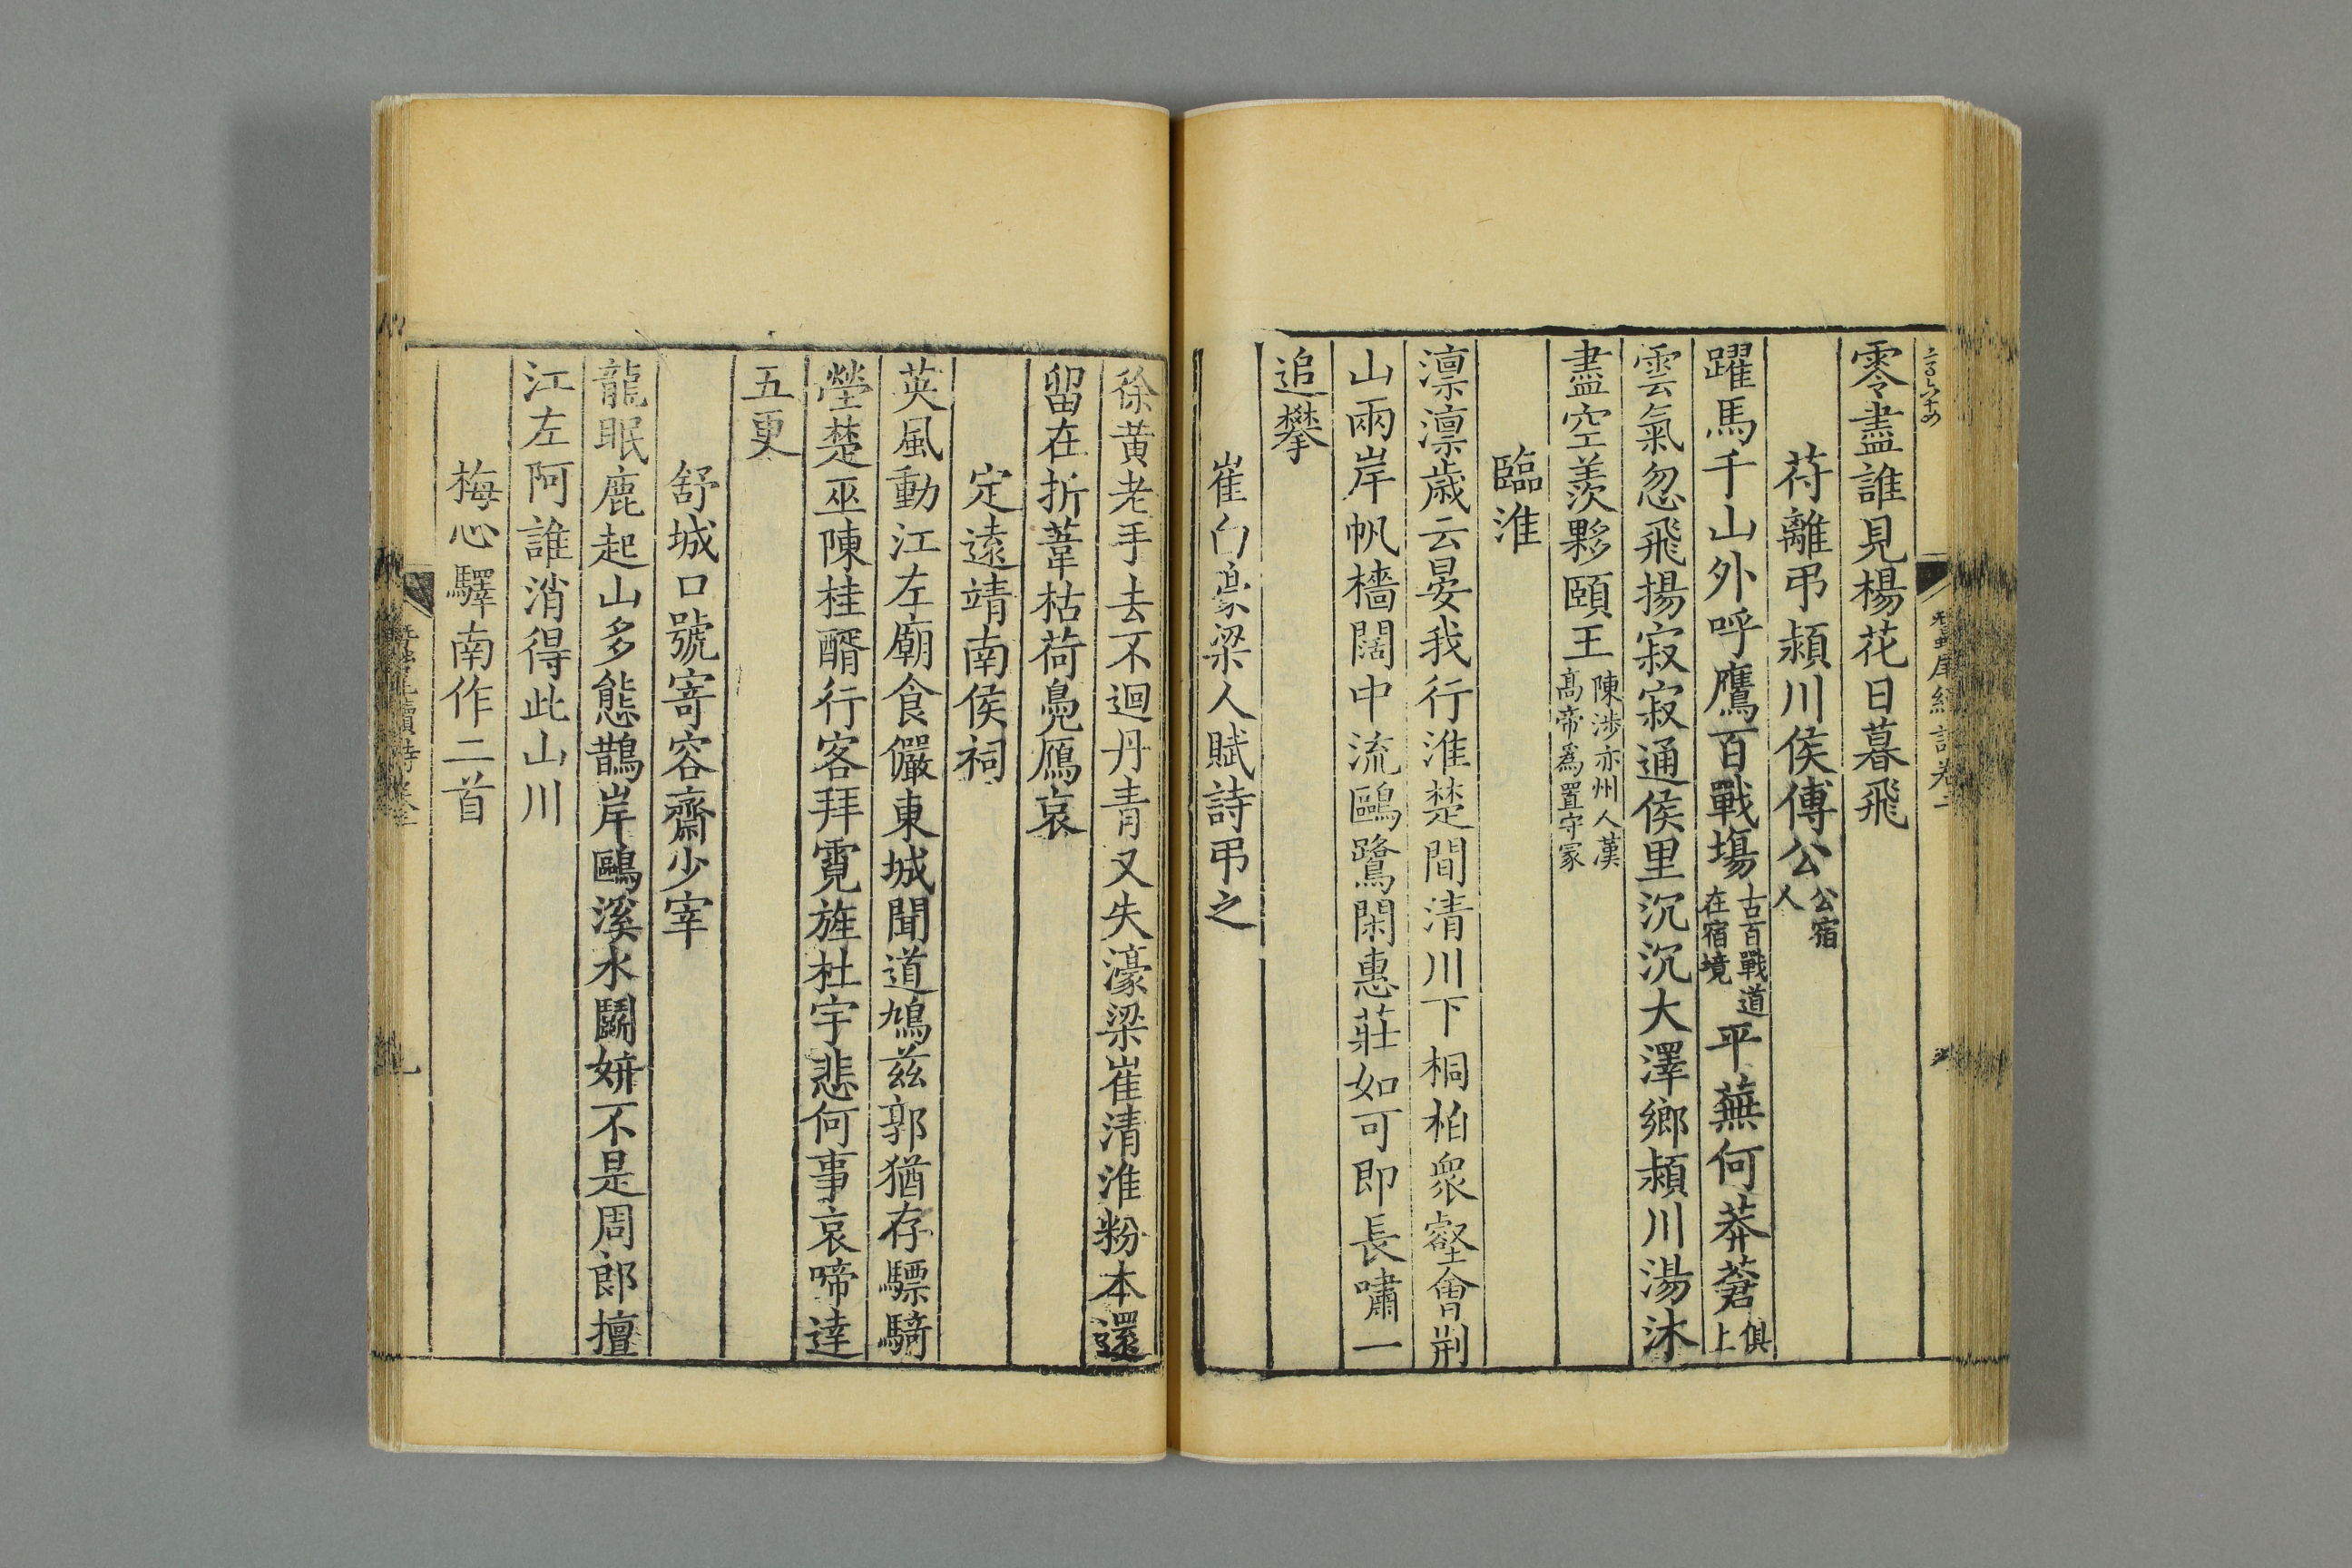 零盡誰見楊花日暮飛
苻離弔潁川侯傅公公宿人
躍馬千山外呼鷹百戰塲古百戰道在宿境平蕪何莽蒼俱上
雲氣忽飛揚寂寂通侯里沉沉大澤鄉潁川湯沐
盡空羨夥頤王陳涉亦州人漢高帝爲置守冢
臨淮
凛凛歲云晏我行淮楚間清川下桐柏衆壑會荆
山兩岸帆檣闊中流鷗鷺閑惠莊如可即長嘯一
追攀
崔白濠梁人賦詩弔之
徐黄老手去不迴丹青又失濠梁崔清淮粉本還
留在折葦枯荷鳧鴈哀
定遠靖南侯祠
英風動江左廟食儼東城聞道鳩茲郭猶存驃騎
塋楚巫陳桂醑行客拜霓旌杜宇悲何事哀啼達
五更
舒城口號寄容齋少宰
龍眠鹿起山多態鵲岸鷗溪水鬭妍不是周郎擅
江左阿誰消得此山川
梅心驛南作二首